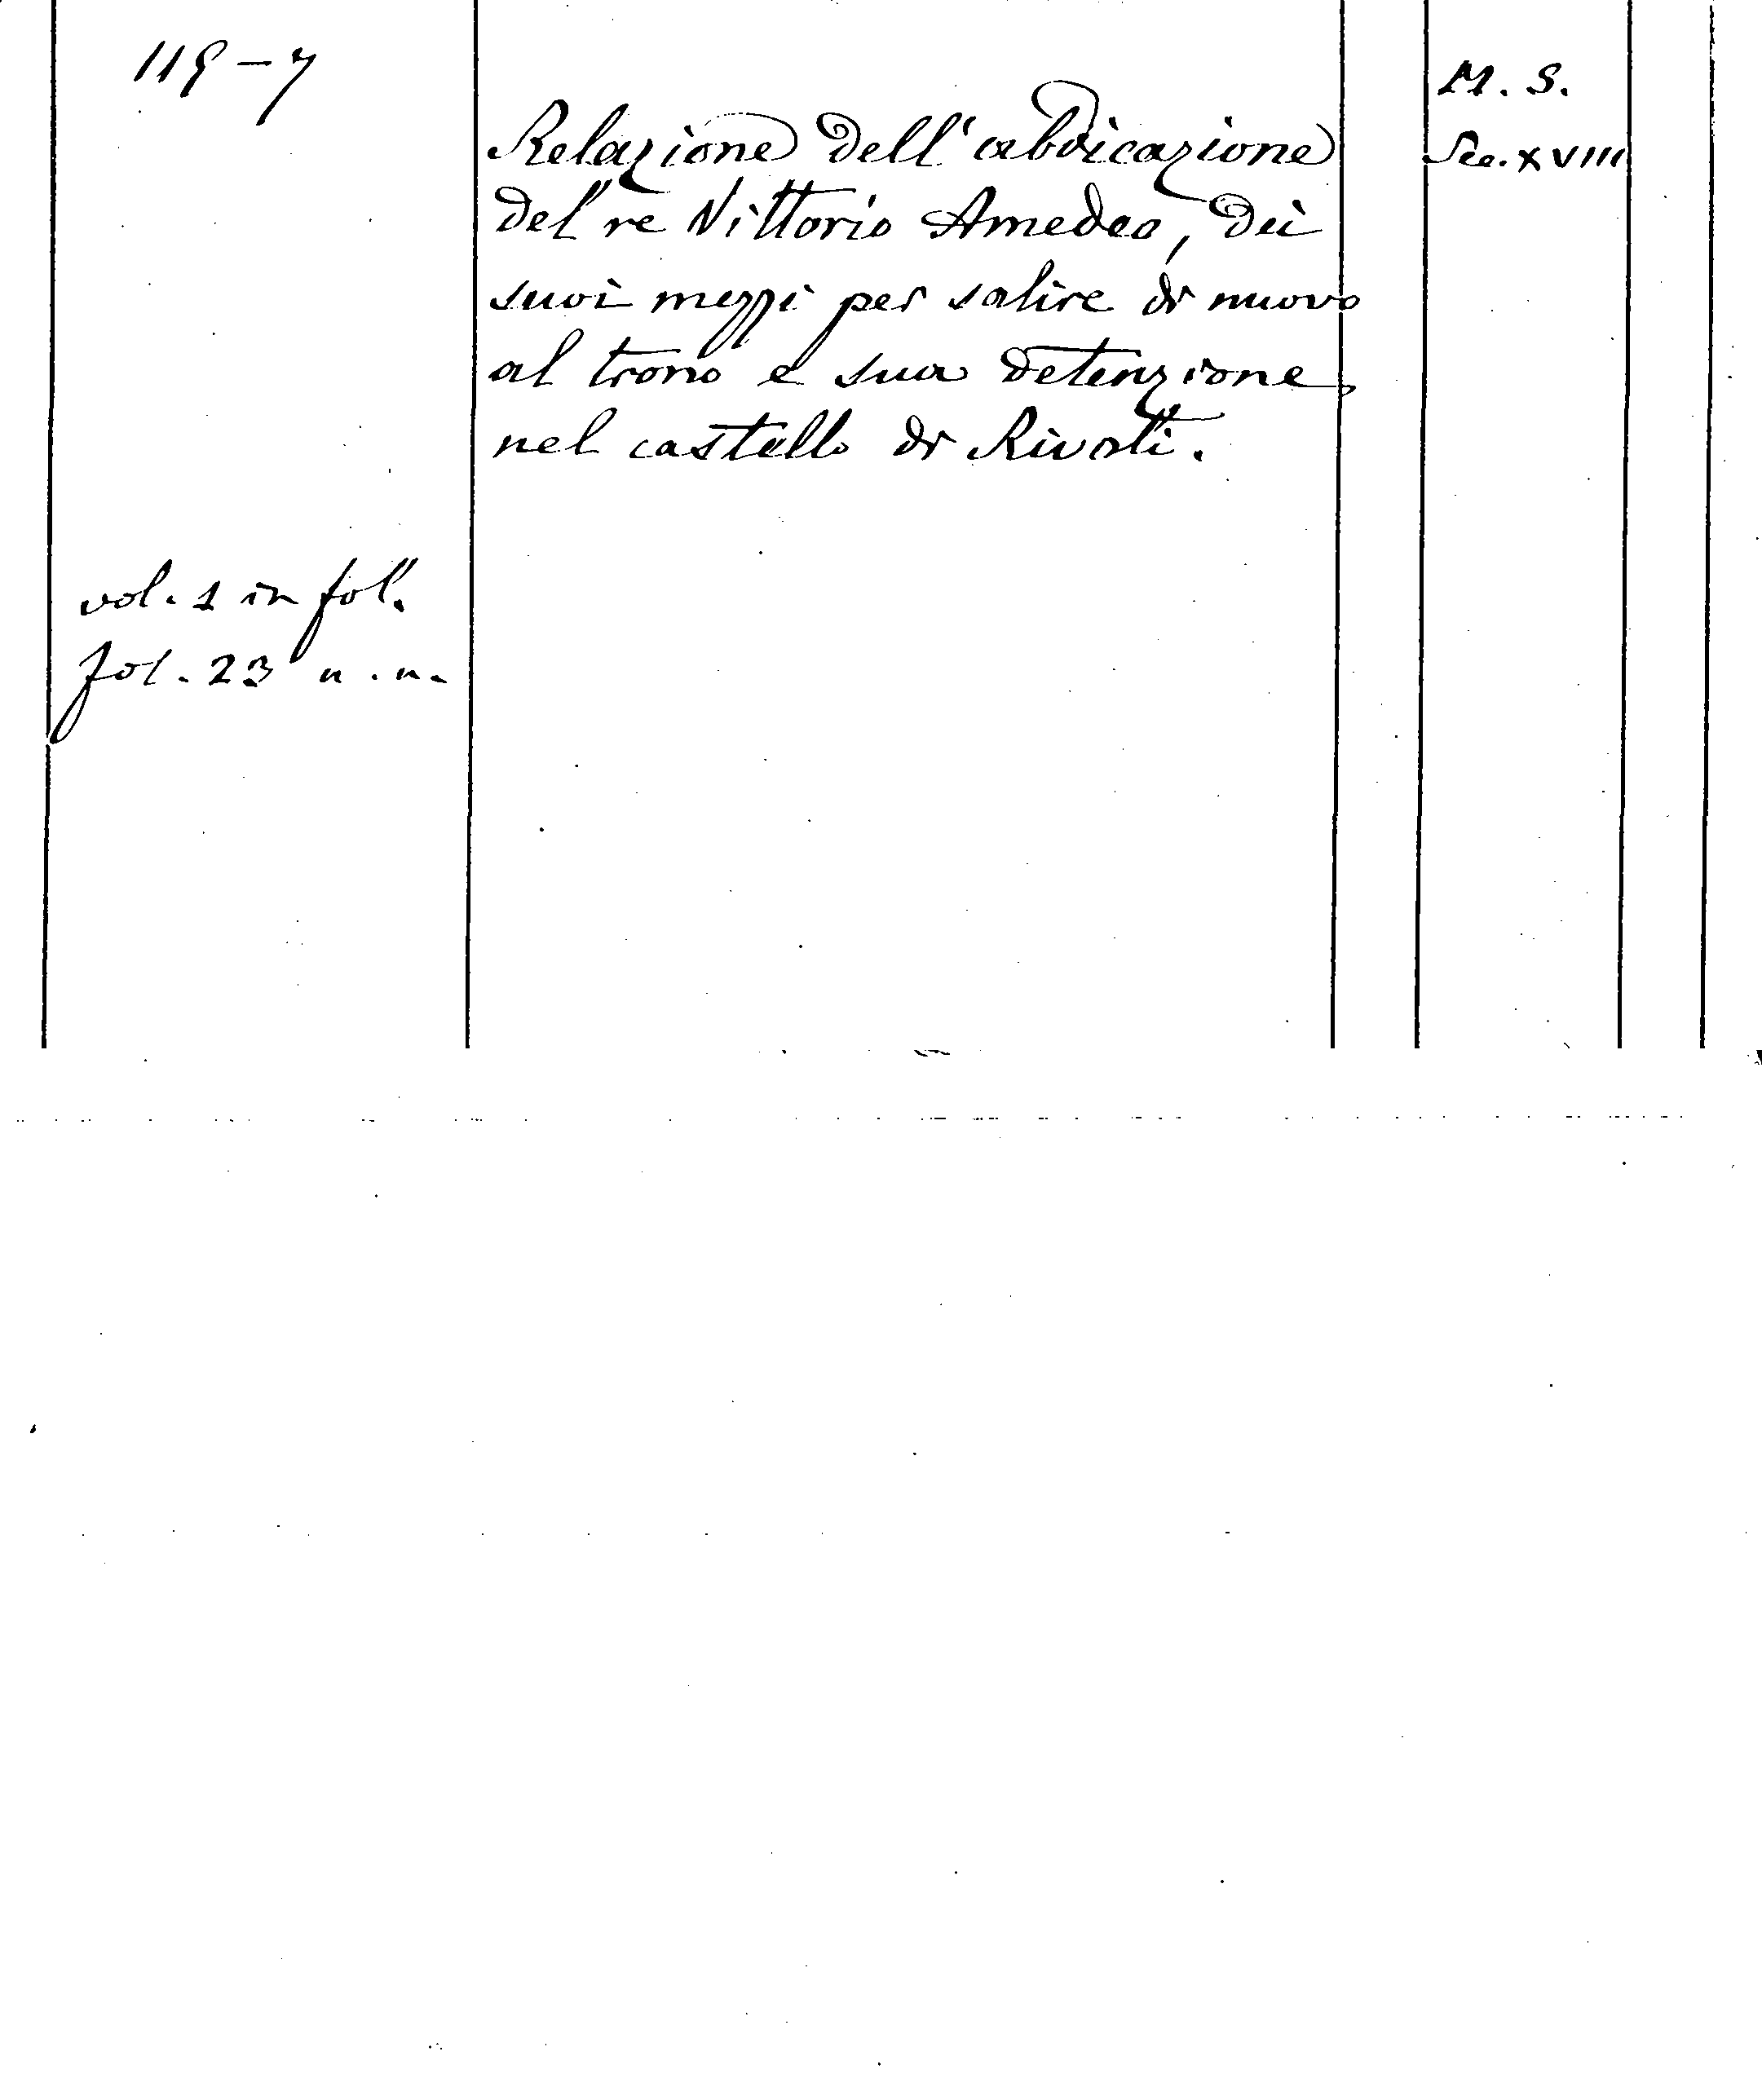 119-7
M. S.
Relazione dell'abdicazione
Sec. XVIII
del re Vittorio Amedeo, dei
suoi mezzi per salire di nuovo
al trono e sua detenzione
nel castello di Rivoli.
vol. 1 in fol.
fol. 23 n.n.